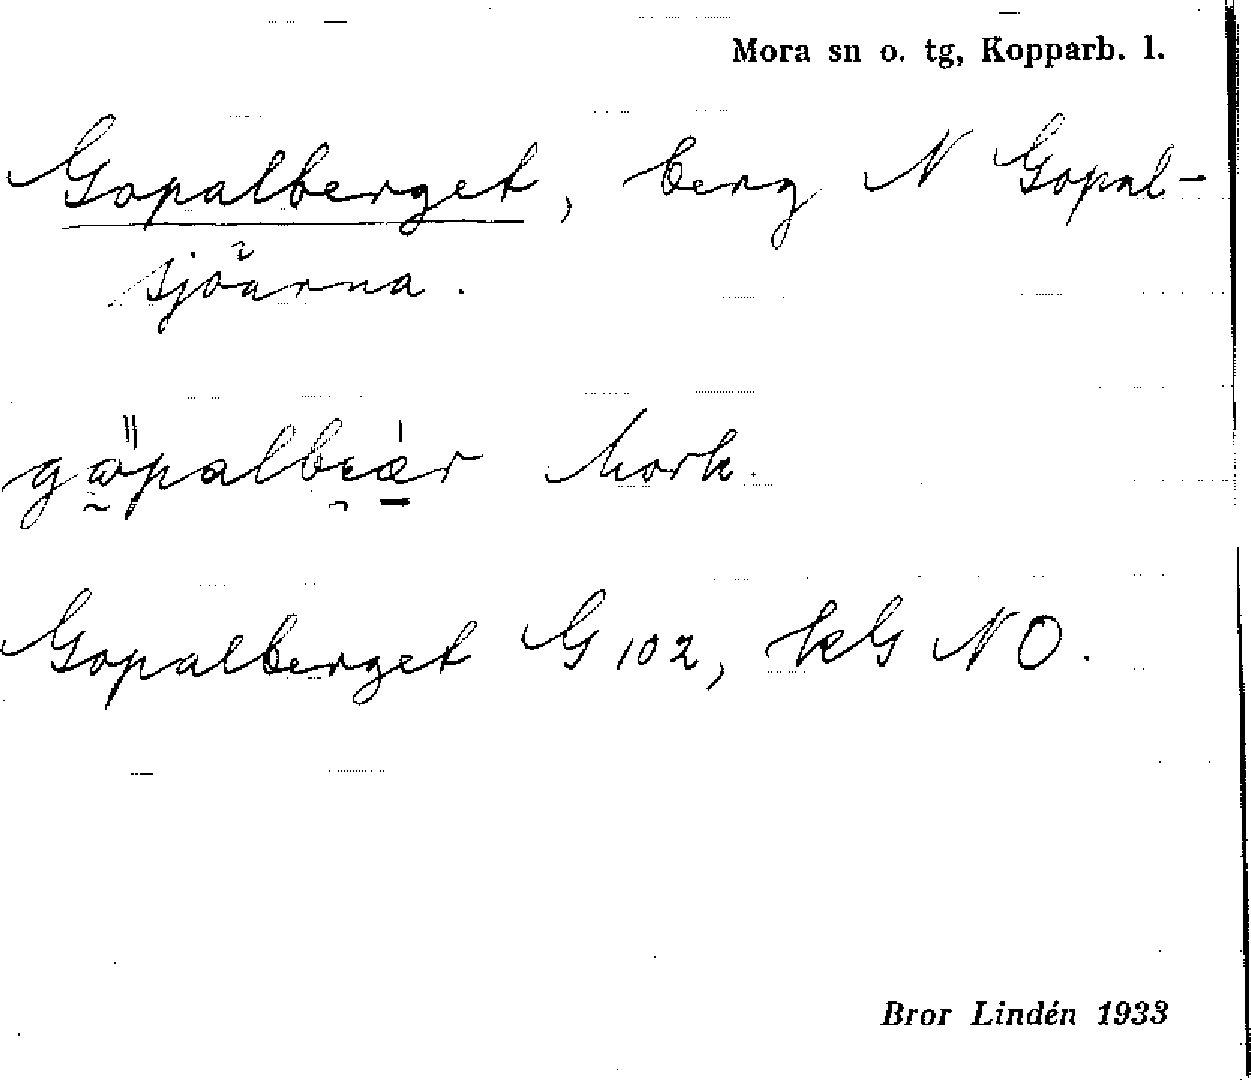 Mora sn o. tg, Kopparb. l.
Gopalberget, berg N Gopal-
sjöarna.
Mork.
Gopalberget G 102, kG NO.
Bror Lindén 1933